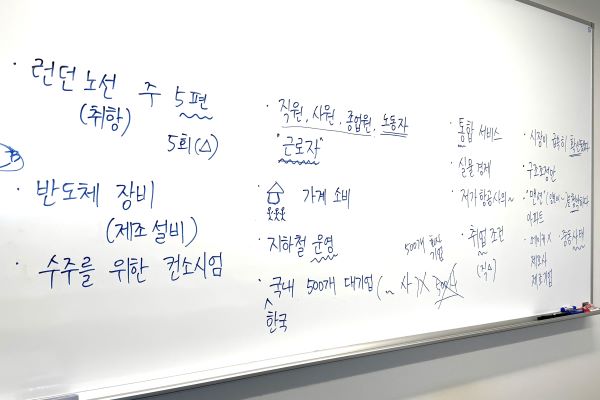 · 런던 노선 주 5편
(취항)
5회(△)
· 반도체 장비
(제조설비)
· 수주를 위한 컨소시엄
· 직원, 사원, 종업원, 노동자
"근로자"
· 가계 소비
· 지하철 운영
500개
기업
· 국내 500개 대기업 (~ 사) X
한국
· 통합 서비스
· 실물경제
· 저가항공사의~
· 취업 조건
· 시장이 급속히
· 구조조정안
아파트
· 중동사태
제조사
제조기업